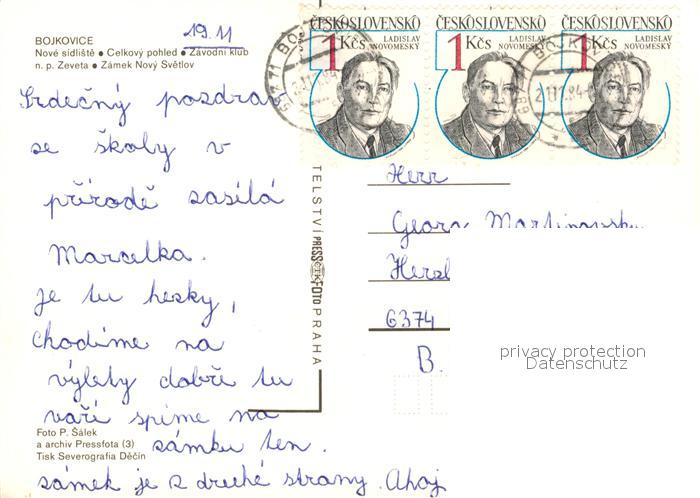 19.11
BOJKOVICE
Nové sídliště • Celkový pohled • Závodní klub
n. p. Zeveta • Zámek Nový Světlov
Srdečný pozdrav
se školy v
přírodě zasílá
Marcelka.
je tu hezky,
chodíme na
výlety dobře tu
vaří spíme na
zámku ten.
zámek je z druhé strany. Ahoj
Foto P. Šálek
a archiv Pressfota (3)
Tisk Severografia Děčín
TELSTVÍ PRESSFOTO PRAHA
ČESKOSLOVENSKO
1 Kčs LADISLAV
NOVOMESKÝ
ČESKOSLOVENSKO
1 Kčs LADISLAV
NOVOMESKÝ
ČESKOSLOVENSKO
1 Kčs LADISLAV
NOVOMESKÝ
Herr
Georg
6374
B.
privacy protection
Datenschutz